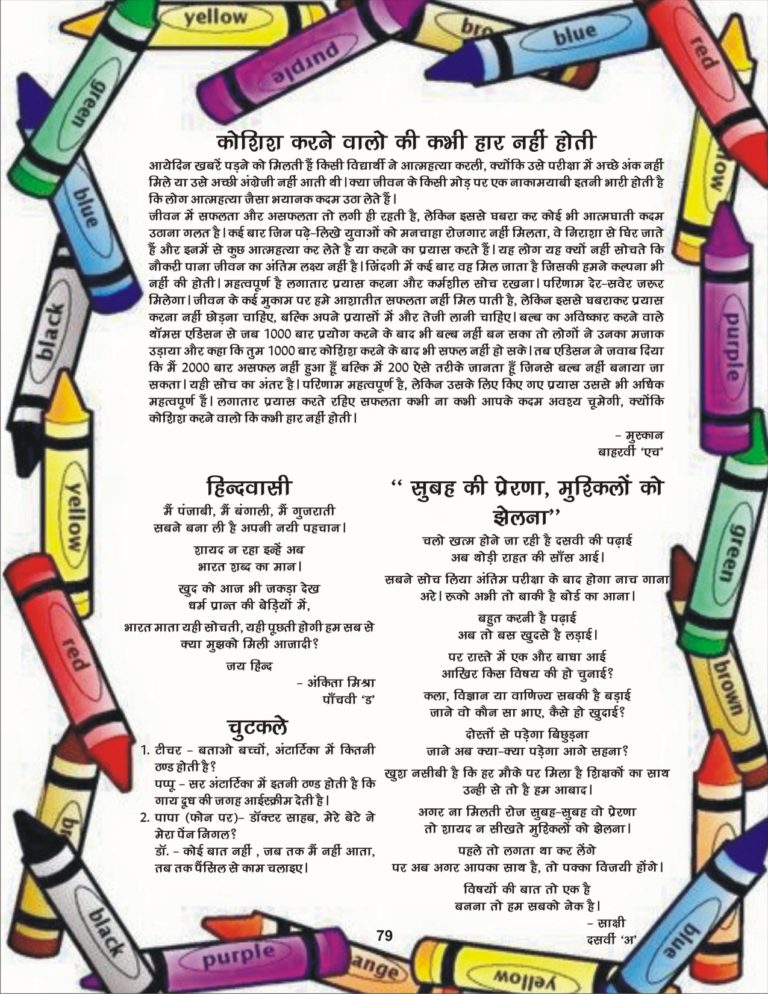 yellow
purple
bro
blue
red
green
yellow
blue
black
purple
yellow
green
red
brown
br
black
purple
ange
yellow
blue
कोशिश करने वालो की कभी हार नहीं होती
आयेदिन खबरें पड़ने को मिलती हैं किसी विद्यार्थी ने आत्महत्या करली, क्योंकि उसे परीक्षा में अच्छे अंक नहीं
मिले या उसे अच्छी अंग्रेजी नहीं आती थी। क्या जीवन के किसी मोड़ पर एक नाकामयाबी इतनी भारी होती है
कि लोग आत्महत्या जैसा भयानक कदम उठा लेते हैं।
जीवन में सफलता और असफलता तो लगी ही रहती है, लेकिन इससे घबरा कर कोई भी आत्मघाती कदम
उठाना गलत है। कई बार जिन पढ़े-लिखे युवाओं को मनचाहा रोजगार नहीं मिलता, वे निराशा से घिर जाते
हैं और इनमें से कुछ आत्महत्या कर लेते है या करने का प्रयास करते हैं। यह लोग यह क्यों नहीं सोचते कि
नौकरी पाना जीवन का अंतिम लक्ष्य नहीं है। जिंदगी में कई बार वह मिल जाता है जिसकी हमने कल्पना भी
नहीं की होती। महत्वपूर्ण है लगातार प्रयास करना और कर्मशील सोच रखना। परिणाम देर-सवेर जरूर
मिलेगा। जीवन के कई मुकाम पर हमे आशातीत सफलता नहीं मिल पाती है, लेकिन इससे घबराकर प्रयास
करना नहीं छोड़ना चाहिए, बल्कि अपने प्रयासों में और तेजी लानी चाहिए। बल्ब का अविष्कार करने वाले
थॉमस एडिसन से जब 1000 बार प्रयोग करने के बाद भी बल्ब नहीं बन सका तो लोगों ने उनका मजाक
उड़ाया और कहा कि तुम 1000 बार कोशिश करने के बाद भी सफल नहीं हो सके। तब एडिसन ने जवाब दिया
कि मैं 2000 बार असफल नहीं हुआ हूँ बल्कि में 200 ऐसे तरीके जानता हूँ जिनसे बल्ब नहीं बनाया जा
सकता। यही सोच का अंतर है। परिणाम महत्वपूर्ण है, लेकिन उसके लिए किए गए प्रयास उससे भी अधिक
महत्वपूर्ण हैं। लगातार प्रयास करते रहिए सफलता कभी ना कभी आपके कदम अवश्य चूमेगी, क्योंकि
कोशिश करने वालो कि कभी हार नहीं होती।
– मुस्कान
बाहरवीं ‘एच’
हिन्दवासी
मैं पंजाबी, मैं बंगाली, मैं गुजराती
सबने बना ली है अपनी नयी पहचान।
शायद न रहा इन्हें अब
भारत शब्द का मान।
खुद को आज भी जकड़ा देख
धर्म प्रान्त की बेड़ियों में,
भारत माता यही सोचती, यही पूछती होगी हम सब से
क्या मुझको मिली आजादी?
जय हिन्द
– अंकिता मिश्रा
पाँचवी ‘ड’
चुटकले
1. टीचर – बताओ बच्चों, अंटार्टिका में कितनी
ठण्ड होती है?
पप्पू – सर अंटार्टिका में इतनी ठण्ड होती है कि
गाय दूध की जगह आईस्क्रीम देती है।
2. पापा (फोन पर)– डॉक्टर साहब, मेरे बेटे ने
मेरा पेंन निगल?
डॉ. – कोई बात नहीं , जब तक मैं नहीं आता,
तब तक पैंसिल से काम चलाइए।
‘‘ सुबह की प्रेरणा, मुश्किलों को
झेलना’’
चलो खत्म होने जा रही है दसवी की पढ़ाई
अब थोड़ी राहत की साँस आई।
सबने सोच लिया अंतिम परीक्षा के बाद होगा नाच गाना
अरे। रूको अभी तो बाकी है बोर्ड का आना।
बहुत करनी है पढ़ाई
अब तो बस खुदसे है लड़ाई।
पर रास्ते में एक और बाधा आई
आखिर किस विषय की हो चुनाई?
कला, विज्ञान या वाणिज्य सबकी है बड़ाई
जाने वो कौन सा भाए, कैसे हो खुदाई?
दोस्तों से पड़ेगा बिछुड़ना
जाने अब क्या-क्या पड़ेगा आगे सहना?
खुश नसीबी है कि हर मौके पर मिला है शिक्षकों का साथ
उन्ही से तो है हम आबाद।
अगर ना मिलती रोज सुबह-सुबह वो प्रेरणा
तो शायद न सीखते मुश्किलों को झेलना।
पहले तो लगता था कर लेंगे
पर अब अगर आपका साथ है, तो पक्का विजयी होंगे।
विषयों की बात तो एक है
बनना तो हम सबको नेक है।
– साक्षी
दसवीं ‘अ’
79